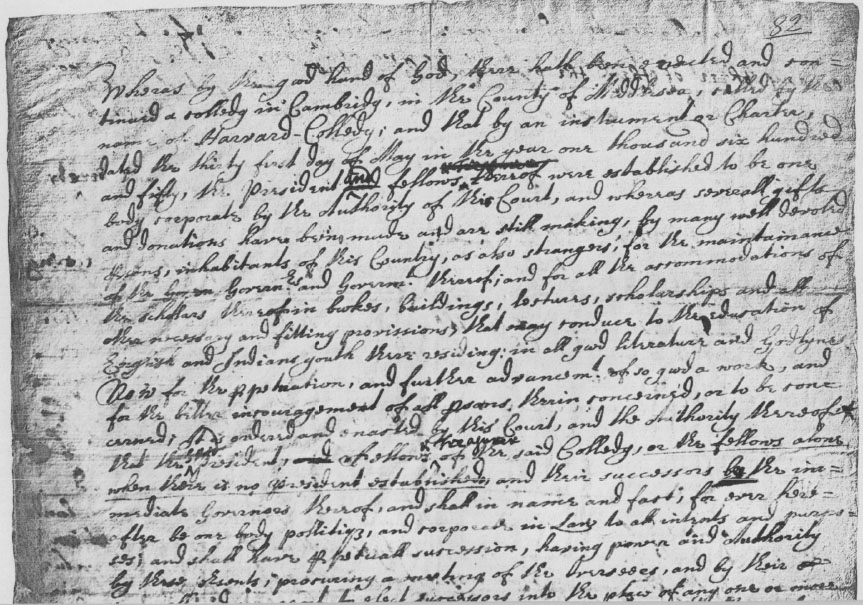 82
Wheras by the good hand of God, there hath been erected and con=
tinued a colledg in Cambridg, in the County of Middlesex, called by the
name of Harvard-Colledg; and that by an instrument or Charter,
dated the thirty first day of May in the year one thousand six hundred
and fifty, the President and fellows, therof were established to be one
body corporate by the Authority of this Court, and wheras severall gifts
and donations have been made and are still making, by many well devoted
psons, inhabitants of this Country, as also strangers, for the maintainance
of the Govern.rs and Governm.t therof; and for all the accommodations of
the scholars therof in bookes, buildings, lectures, scholarships and all
other necessary and fitting provissions, that may conduce to the education of
English and Indians youth there residing; in all good literature and Godlynes
Now for the ppetuation, and further advancem.t of so good a work, and
for the better incouragement of all psons therin concerned, or to be conc
cerned; It is ordered and enacted by this Court, and the Authority therof
Treasurer
that the President, fellows of the said Colledg, or the fellows alone
when their is no president established, and their successors be the im=
mediate Governors therof, and shall in name and fact, for ever here=
after be one body pollitiq, and corporate in Law to all intents and purpo=
ses; and shall have ppetuall succession, having power and Authority
by these psents, procuring a meeting of the Overseers, and by their
elect successors into the place of any one or more